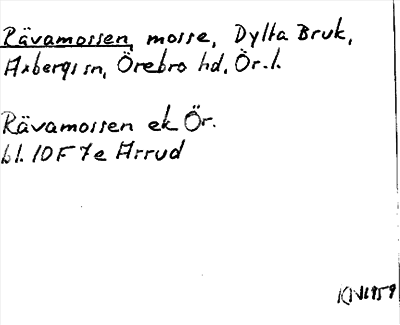 Rävamossen, mosse, Dylta Bruk,
Axbergs sn, Örebro hd, Ör. l.
Rävamossen ek Ör.
bl. 10F 7e Arrud
1959